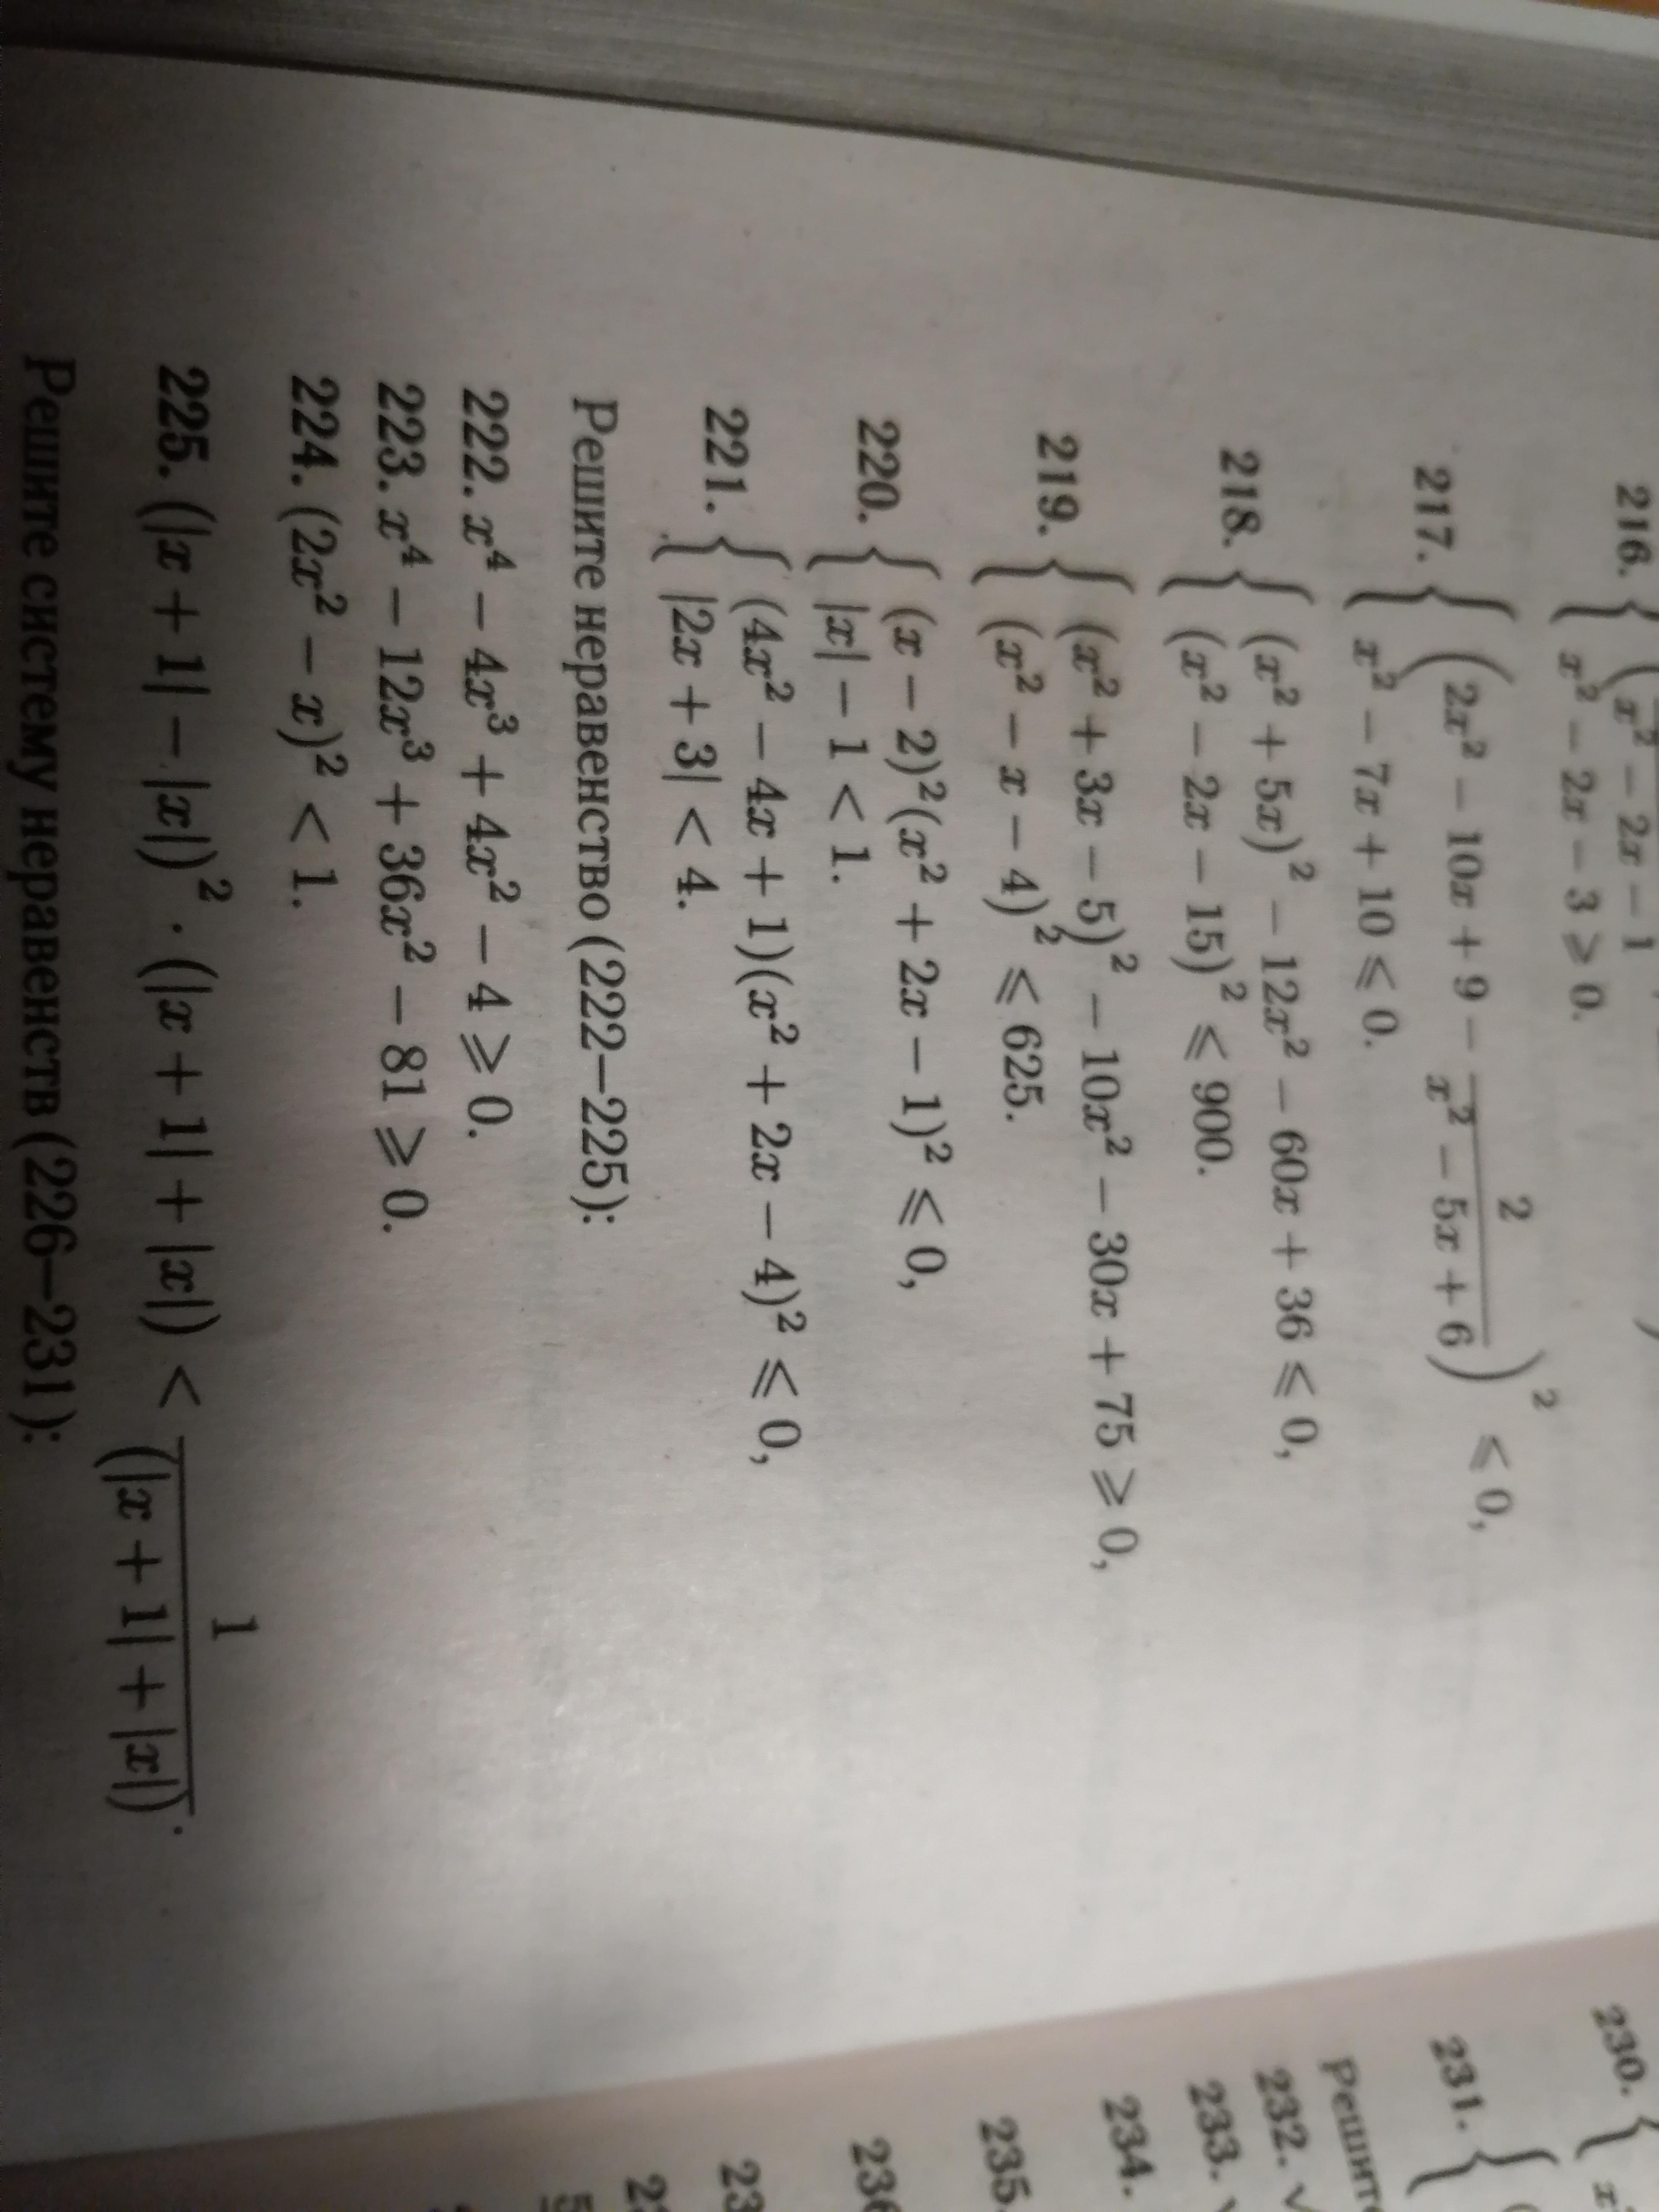 216. { ( x² − 2x − 1
x² − 2x − 3 ⩾ 0.
217. { (2x² − 10x + 9 − 2/(x² − 5x + 6))² ⩽ 0,
x² − 7x + 10 ⩽ 0.
218. { (x² + 5x)² − 12x² − 60x + 36 ⩽ 0,
(x² − 2x − 15)² ⩽ 900.
219. { (x² + 3x − 5)² − 10x² − 30x + 75 ⩾ 0,
(x² − x − 4)² ⩽ 625.
220. { (x − 2)²(x² + 2x − 1)² ⩽ 0,
|x| − 1 < 1.
221. { (4x² − 4x + 1)(x² + 2x − 4)² ⩽ 0,
|2x + 3| < 4.
Решите неравенство (222—225):
222. x⁴ − 4x³ + 4x² − 4 ⩾ 0.
223. x⁴ − 12x³ + 36x² − 81 ⩾ 0.
224. (2x² − x)² < 1.
225. (|x + 1| − |x|)² · (|x + 1| + |x|) < 1/(|x + 1| + |x|).
Решите систему неравенств (226—231):
230. {
231. {
Решите
232. √
233. √
234.
235.
236
23